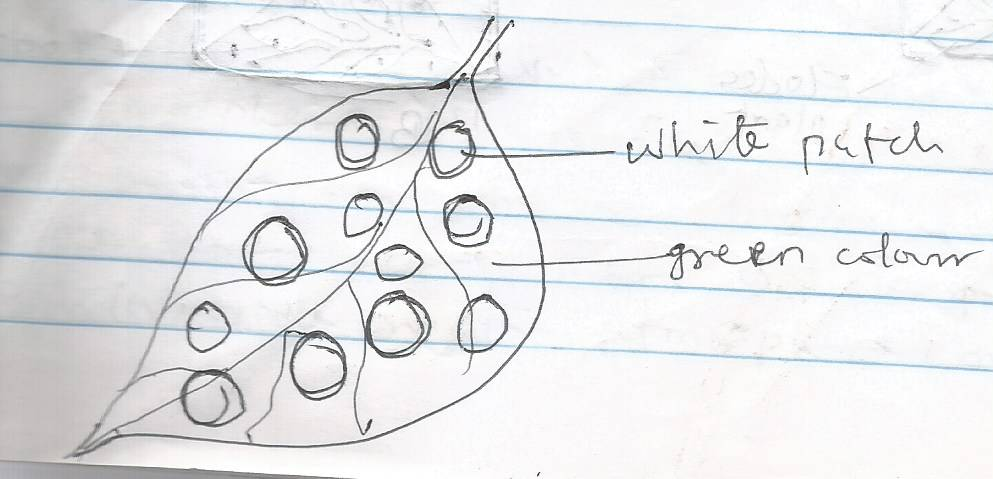 white patch
green colour